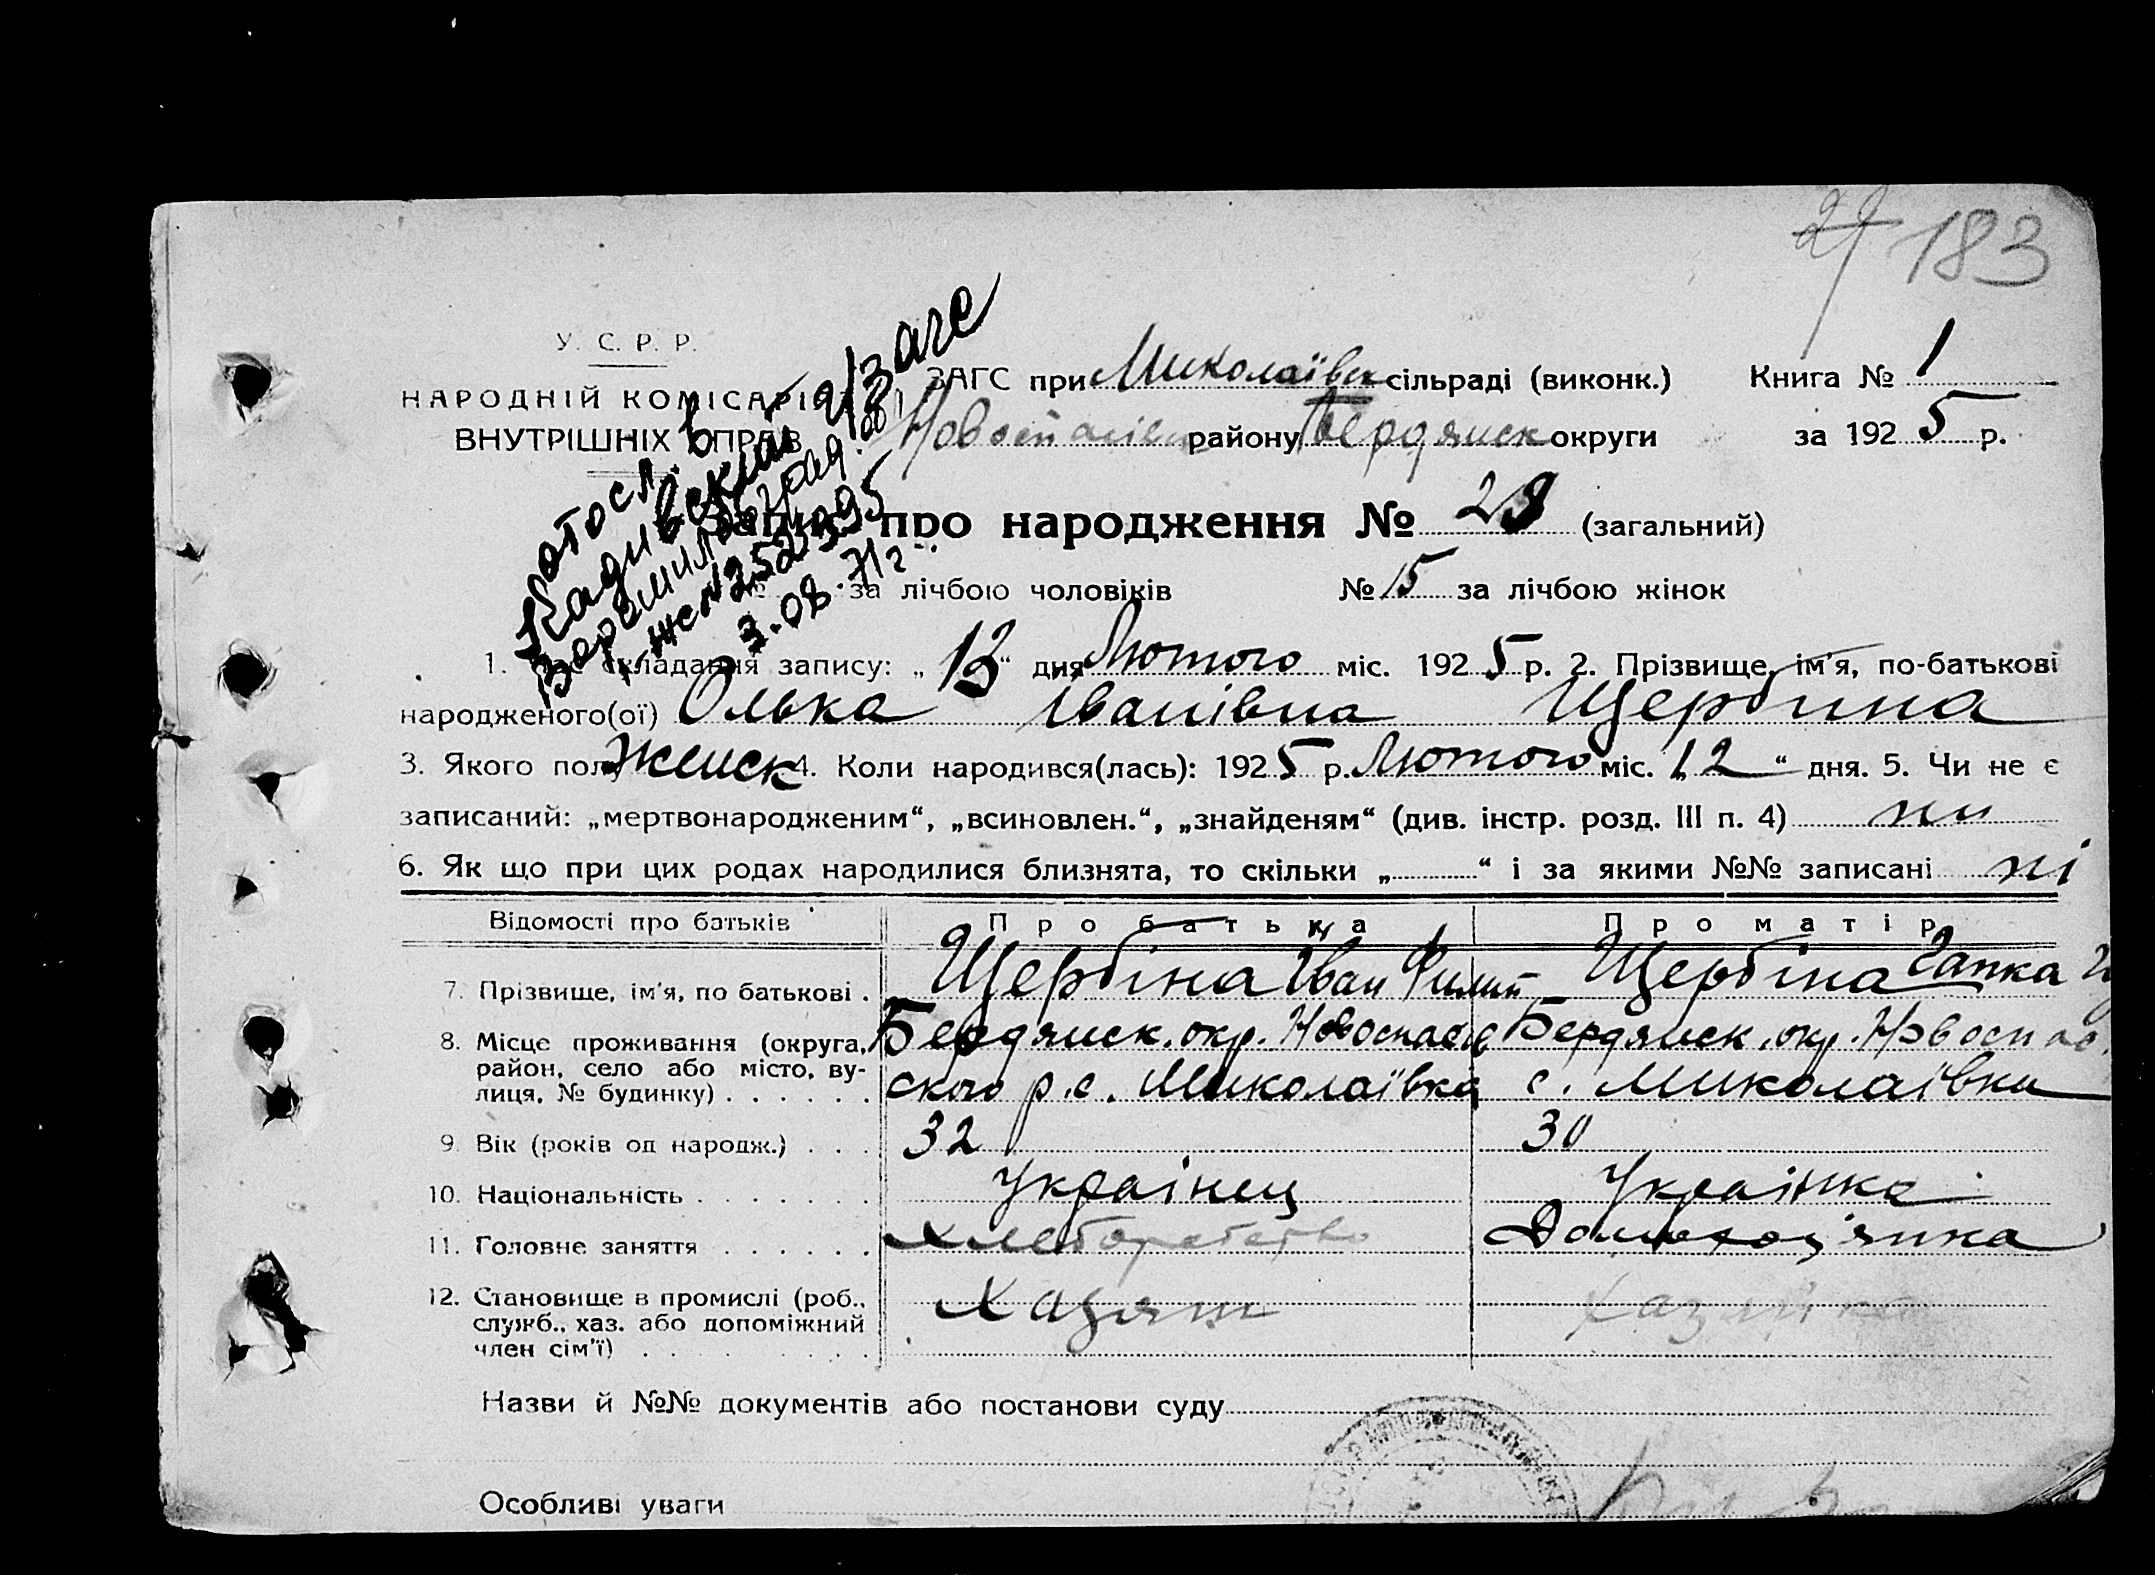 27 183
У. С. Р. Р.
НАРОДНІЙ КОМІСАРІЯТ
ВНУТРІШНІХ СПРАВ
ЗАГС при Миколаївск сільраді (виконк.) Книга № 1
Новоспасівск району Бердянск округи за 1925 р.
Запис про народження № 28 (загальний)
№ за лічбою чоловіків № 15 за лічбою жінок
3.08.71г.
1. складання запису: „13“ дня Лютого міс. 1925 р. 2. Прізвище, ім’я, по-батькові
народженого(ої) Олька Іванівна Щербина
3. Якого полу женск 4. Коли народився(лась): 1925 р. Лютого міс. „12“ дня. 5. Чи не є
записаний: „мертвонародженим“, „всиновлен.“, „знайденям“ (див. інстр. розд. III п. 4) ни
6. Як що при цих родах народилися близнята, то скільки „ “ і за якими №№ записані ні
Відомості про батьків Про батька Про матір
7. Прізвище, ім’я, по батькові . Щербіна Іван Филип Щербіна Гапка
8. Місце проживання (округа, Бердянск. окр. Новоспасів Бердянск. окр. Новоспас.
район, село або місто, ву-
лиця, № будинку) . . . . . . ского р. с. Миколаївка с. Миколаївки
9. Вік (років од народж.) . . . 32 30
10. Національність . . . . . . . Українец Українка
11. Головне заняття . . . . . . хлеборобство Домохоз’яйка
12. Становище в промислі (роб., Хазяин хазяйка
служб., хаз. або допоміжний
член сім’ї)
Назви й №№ документів або постанови суду
Особливі уваги